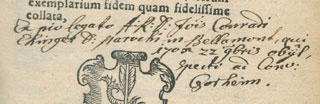 exemplarium fidem quam fidelissime
collata,
Ex pio legato A. R. D. Jois Conradi
Etinger D. Parochi in Bellamont, qui
22 9bris obijt,
spectat ad Conv.